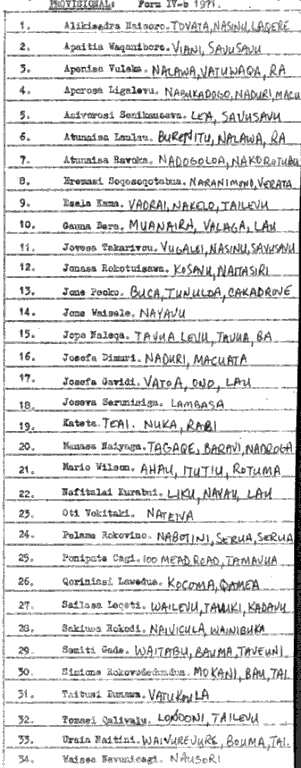 PROVISIONAL: Form IV-b 1971.
1. Alikisandra Naisoro. TOVATA, NASINU, LAQERE
2. Apaitia Waqaniboro. VIANI, SAVUSAVU
3. Apenisa Vulaka. NALAWA, VATUWAQA, RA
4. Aporosa Ligalevu. NABUKADOGO, NADURI, MACU
5. Asivorosi Senikaucava. LEA, SAVUSAVU
6. Atunaisa Laulau. BURENITU, NALAWA, RA
7. Atunaisa Ravoka. NADOGOLOA, NAKOROTUBU
8. Eremasi Soqosoqotabua. NARANIMONO, VERATA
9. Esala Kama. VADRAI, NAKELO, TAILEVU
10. Gauna Bera. MUANAIRA, VALAGA, LAU
11. Jovesa Takarivou. VUGALEI, NASINU, SAVUSAVU
12. Jonasa Rokotuisawa. KOSANU, NAITASIRI
13. Jone Pecko. BUCA, TUNULOA, CAKADROVE
14. Jone Waisele. NAYAVU
15. Jope Naleqa. TAVUA LEVU, TAVUA, BA
16. Josefa Dimuri. NADURI, MACUATA
17. Josefa Gavidi. VATOA, ONO, LAU
18. Joseva Serunisiga. LAMBASA
19. Katete. TEAI. NUKA, RABI
20. Manasa Naiyaga. TAGAQE, BARAVI, NADROGA
21. Mario Wilson. AHAU, ITUTIU, ROTUMA
22. Naftalai Kurabui. LIKU, NAYAU, LAU
23. Oti Vokitaki. NATEWA
24. Pelama Rokovino. NABOTINI, SERUA, SERUA
25. Ponipate Cagi. 100 MEAD ROAD, TAMAVUA
26. Qoriniasi Lewedua. KOCOMA, QAMEA
27. Sailasa Leqeti. WAILEVU, TAVUKI, KADAVU
28. Sakiusa Rokodi. NAIVICULA, WAINIBUKA
29. Samiti Gade. WAITABU, BAUMA, TAVEUNI
30. Simione MOKANI, BAU, TAI.
31. Taitusi VATUKOULA
32. Tomasi Qalivalu. LONDONI, TAILEVU
33. Uraia Naitini. WAIVUREVURE, BOUMA, TAI.
34. Waisea Navunicagi. NAUSORI